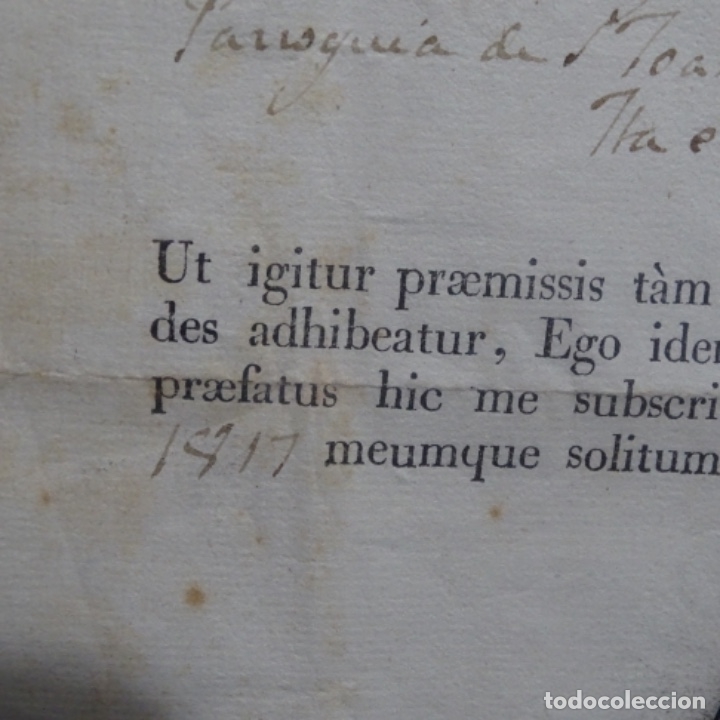 Parroquia de St Joa
Ita e
Ut igitur præmissis tàm
des adhibeatur, Ego iden
præfatus hic me subscri
1817 meumque solitum
todocoleccion.net